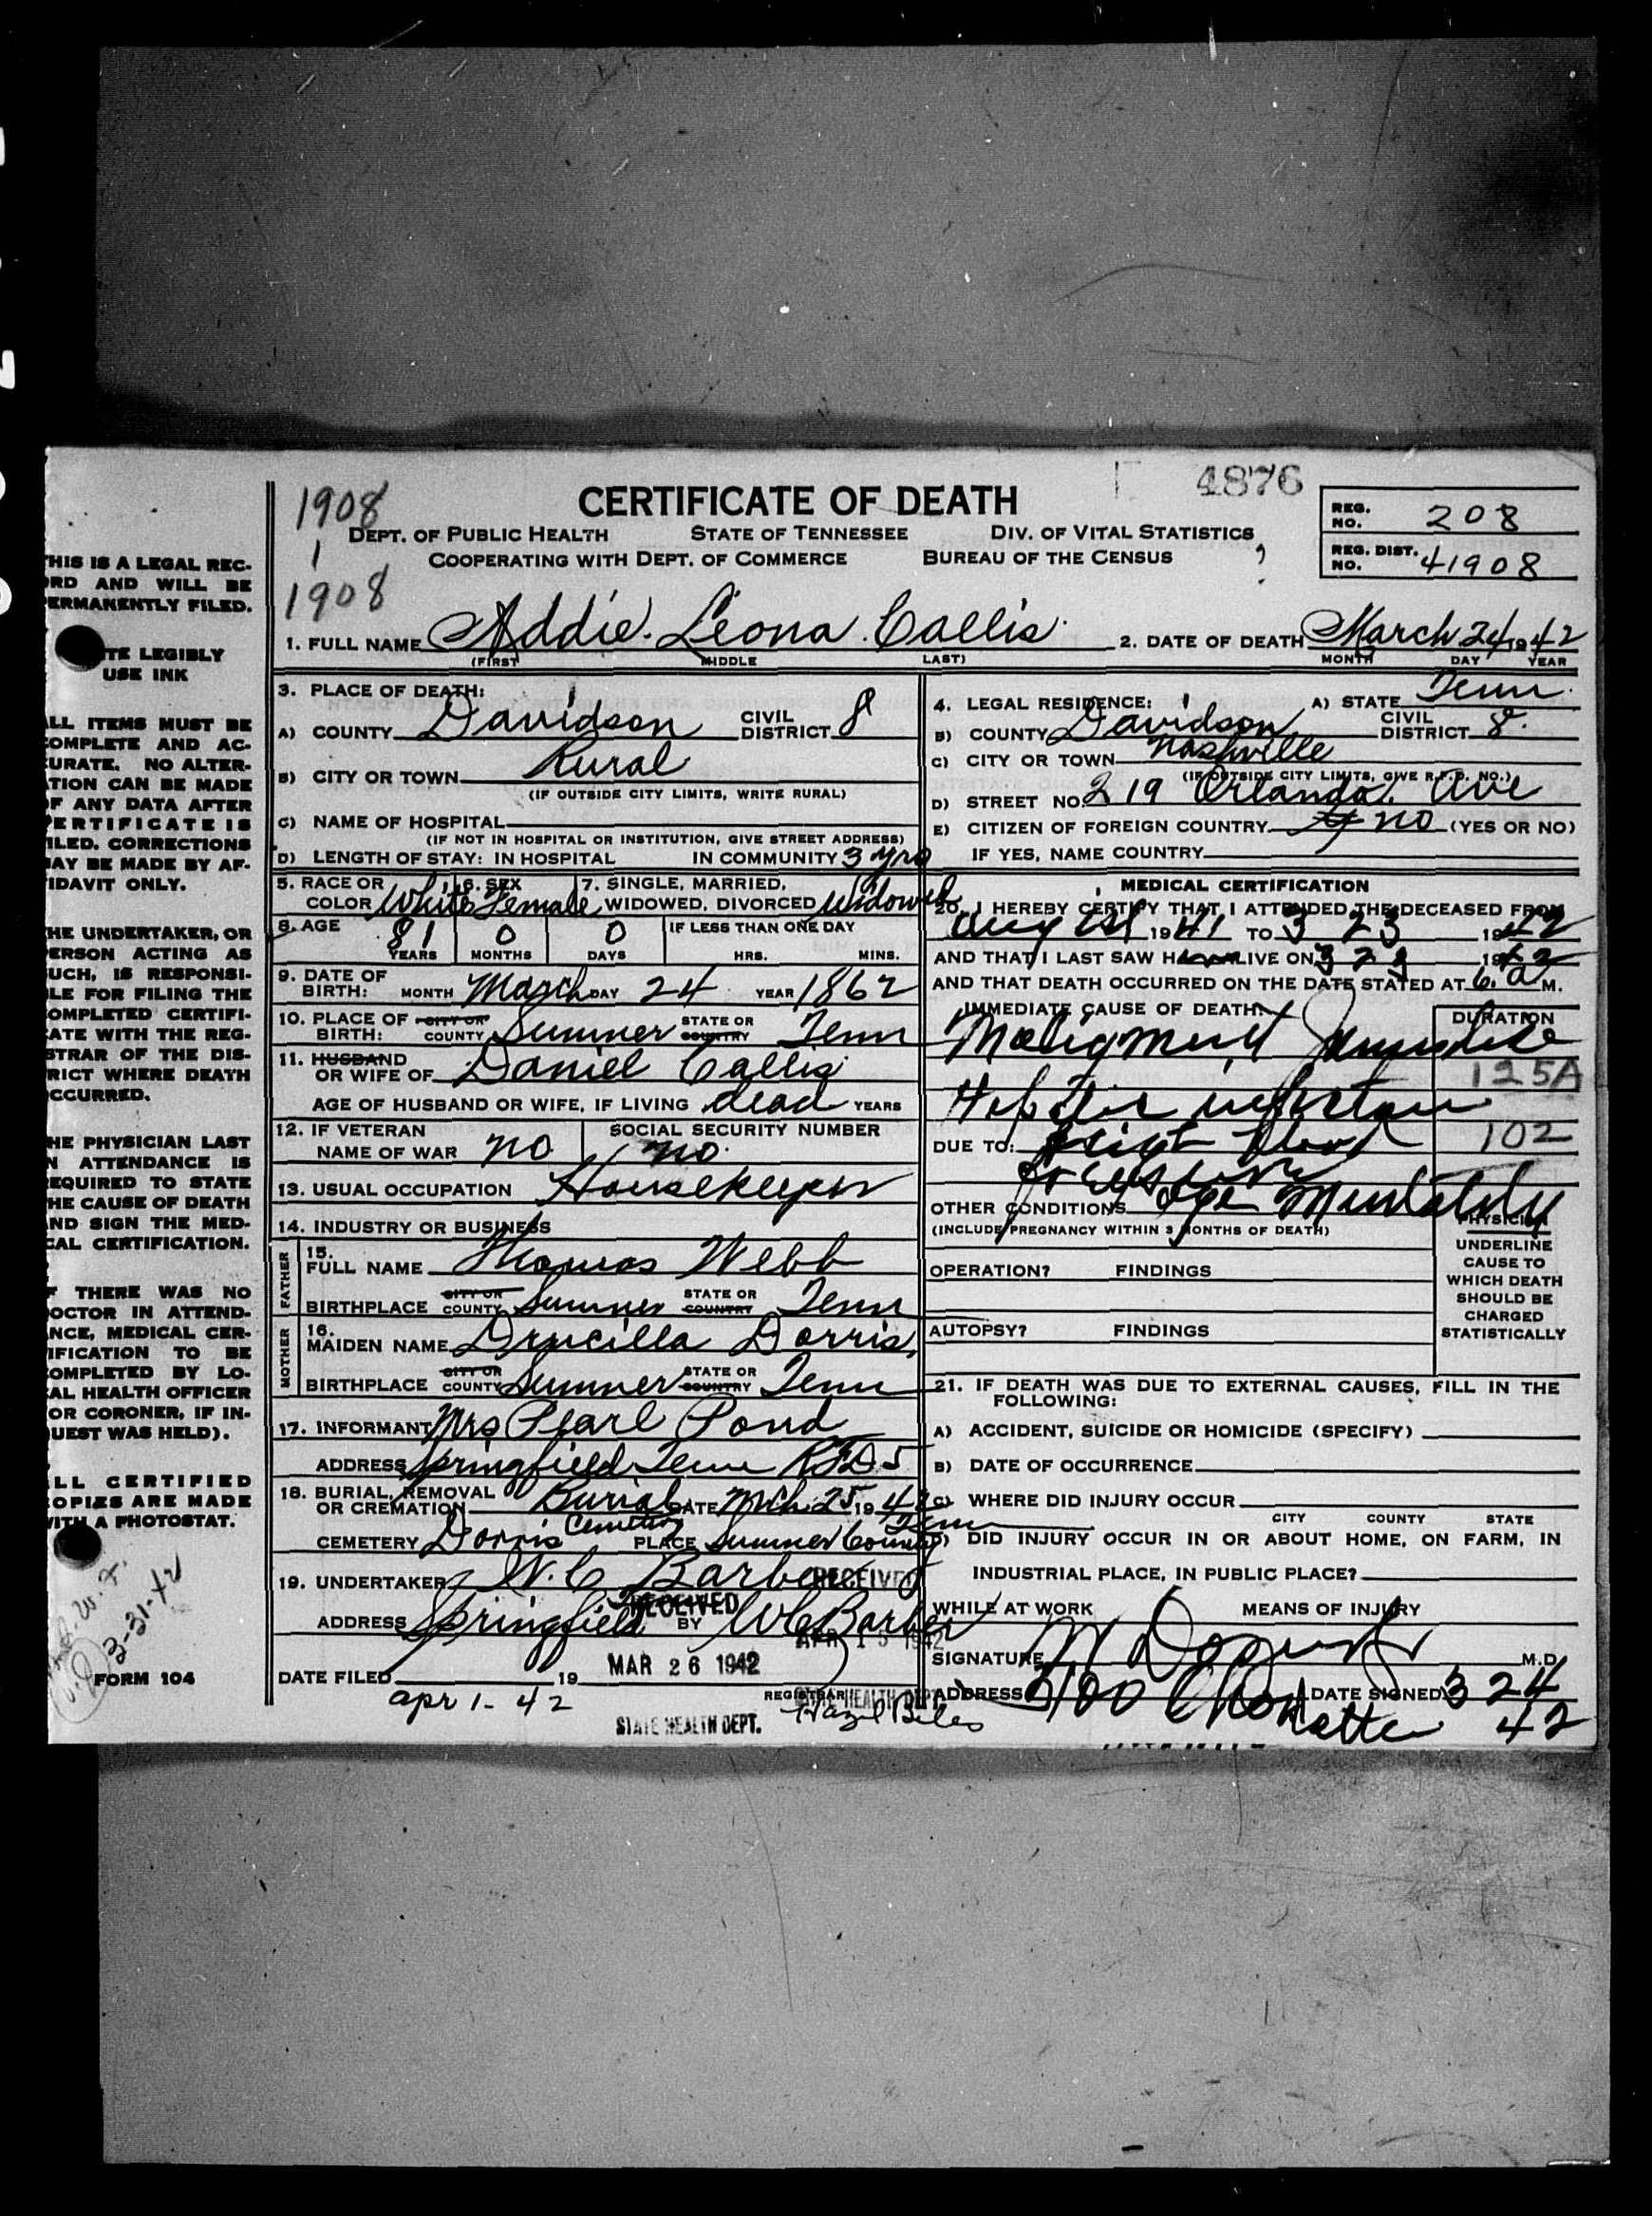 4876
1908
1
1908
CERTIFICATE OF DEATH
DEPT. OF PUBLIC HEALTH STATE OF TENNESSEE DIV. OF VITAL STATISTICS
COOPERATING WITH DEPT. OF COMMERCE BUREAU OF THE CENSUS ?
REG. NO. 208
REG. DIST. NO. 41908
1. FULL NAME Addie Leona Callis 2. DATE OF DEATH March 24 1942
(FIRST MIDDLE LAST) MONTH DAY YEAR
3. PLACE OF DEATH:
A) COUNTY Davidson CIVIL DISTRICT 8
B) CITY OR TOWN Rural
(IF OUTSIDE CITY LIMITS, WRITE RURAL)
C) NAME OF HOSPITAL
(IF NOT IN HOSPITAL OR INSTITUTION, GIVE STREET ADDRESS)
D) LENGTH OF STAY: IN HOSPITAL IN COMMUNITY 3 yrs
4. LEGAL RESIDENCE: A) STATE Tenn.
B) COUNTY Davidson CIVIL DISTRICT 8.
C) CITY OR TOWN Nashville
(IF OUTSIDE CITY LIMITS, GIVE R.F.D. NO.)
D) STREET NO. 219 Orlando. Ave
E) CITIZEN OF FOREIGN COUNTRY no (YES OR NO)
IF YES, NAME COUNTRY
5. RACE OR COLOR White 6. SEX Female 7. SINGLE, MARRIED, WIDOWED, DIVORCED Widowed
8. AGE 81 0 0 IF LESS THAN ONE DAY
YEARS MONTHS DAYS HRS. MINS.
9. DATE OF BIRTH: MONTH March DAY 24 YEAR 1862
10. PLACE OF BIRTH: CITY OR COUNTY Sumner STATE OR COUNTRY Tenn
11. HUSBAND OR WIFE OF Daniel Callis
AGE OF HUSBAND OR WIFE, IF LIVING dead YEARS
12. IF VETERAN NAME OF WAR no SOCIAL SECURITY NUMBER no.
13. USUAL OCCUPATION Housekeeper
14. INDUSTRY OR BUSINESS
FATHER
15. FULL NAME Thomas Webb
BIRTHPLACE CITY OR COUNTY Sumner STATE OR COUNTRY Tenn
MOTHER
16. MAIDEN NAME Drucilla Dorris,
BIRTHPLACE CITY OR COUNTY Sumner STATE OR COUNTRY Tenn
17. INFORMANT Mrs Pearl Pond
ADDRESS Springfield Tenn RFD 5
18. BURIAL, REMOVAL OR CREMATION Burial DATE Mch 25 1942
CEMETERY Dorris Cemetery PLACE Sumner County Tenn
19. UNDERTAKER W.C Barber
ADDRESS Springfield BY W C Barber
RECEIVED
RECEIVED
APR 1 1942
DATE FILED 19
apr 1-42
MAR 26 1942
STATE HEALTH DEPT.
REGISTRAR Hazel Biles
STATE HEALTH DEPT.
MEDICAL CERTIFICATION
20. I HEREBY CERTIFY THAT I ATTENDED THE DECEASED FROM
Aug 1941 TO 3 23 1942
AND THAT I LAST SAW H ALIVE ON 3 23 1942
AND THAT DEATH OCCURRED ON THE DATE STATED AT 6. a M.
IMMEDIATE CAUSE OF DEATH: DURATION
Malignment Jaundice
125A
DUE TO: 102
OTHER CONDITIONS age
(INCLUDE PREGNANCY WITHIN 3 MONTHS OF DEATH)
OPERATION? FINDINGS
AUTOPSY? FINDINGS
PHYSICIAN
UNDERLINE
CAUSE TO
WHICH DEATH
SHOULD BE
CHARGED
STATISTICALLY
21. IF DEATH WAS DUE TO EXTERNAL CAUSES, FILL IN THE
FOLLOWING:
A) ACCIDENT, SUICIDE OR HOMICIDE (SPECIFY)
B) DATE OF OCCURRENCE
C) WHERE DID INJURY OCCUR
CITY COUNTY STATE
D) DID INJURY OCCUR IN OR ABOUT HOME, ON FARM, IN
INDUSTRIAL PLACE, IN PUBLIC PLACE?
WHILE AT WORK MEANS OF INJURY
SIGNATURE M.D.
ADDRESS DATE SIGNED 3 24
42
HIS IS A LEGAL REC-
RD AND WILL BE
ERMANENTLY FILED.
TE LEGIBLY
USE INK
LL ITEMS MUST BE
OMPLETE AND AC-
URATE. NO ALTER-
TION CAN BE MADE
F ANY DATA AFTER
ERTIFICATE IS
ILED. CORRECTIONS
AY BE MADE BY AF-
IDAVIT ONLY.
HE UNDERTAKER, OR
ERSON ACTING AS
UCH, IS RESPONSI-
LE FOR FILING THE
OMPLETED CERTIFI-
ATE WITH THE REG-
STRAR OF THE DIS-
RICT WHERE DEATH
CCURRED.
HE PHYSICIAN LAST
N ATTENDANCE IS
EQUIRED TO STATE
HE CAUSE OF DEATH
ND SIGN THE MED-
CAL CERTIFICATION.
F THERE WAS NO
OCTOR IN ATTEND-
NCE, MEDICAL CER-
IFICATION TO BE
OMPLETED BY LO-
AL HEALTH OFFICER
OR CORONER, IF IN-
UEST WAS HELD).
LL CERTIFIED
OPIES ARE MADE
WITH A PHOTOSTAT.
3-31-42
FORM 104